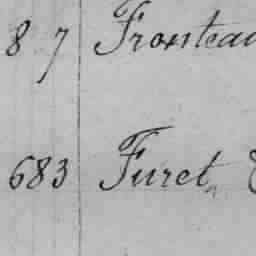 8 7 Fronteau
683 Furet